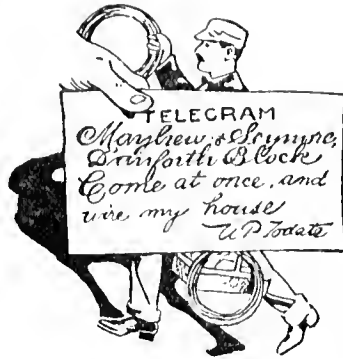 TELEGRAM
Mayhew & Scynmo,
Danforth Block
Come at once, and
wire my house
U P Todate